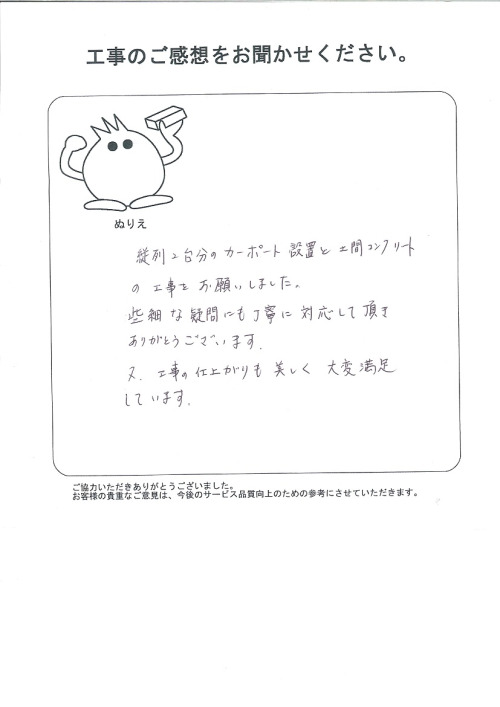 工事のご感想をお聞かせください。
ぬりえ
縦列2台分のカーポート設置と土間コンクリート
の工事をお願いしました。
些細な疑問にも丁寧に対応して頂き
ありがとうございます。
又、工事の仕上がりも美しく大変満足
しています。
ご協力いただきありがとうございました。
お客様の貴重なご意見は、今後のサービス品質向上のための参考にさせていただきます。